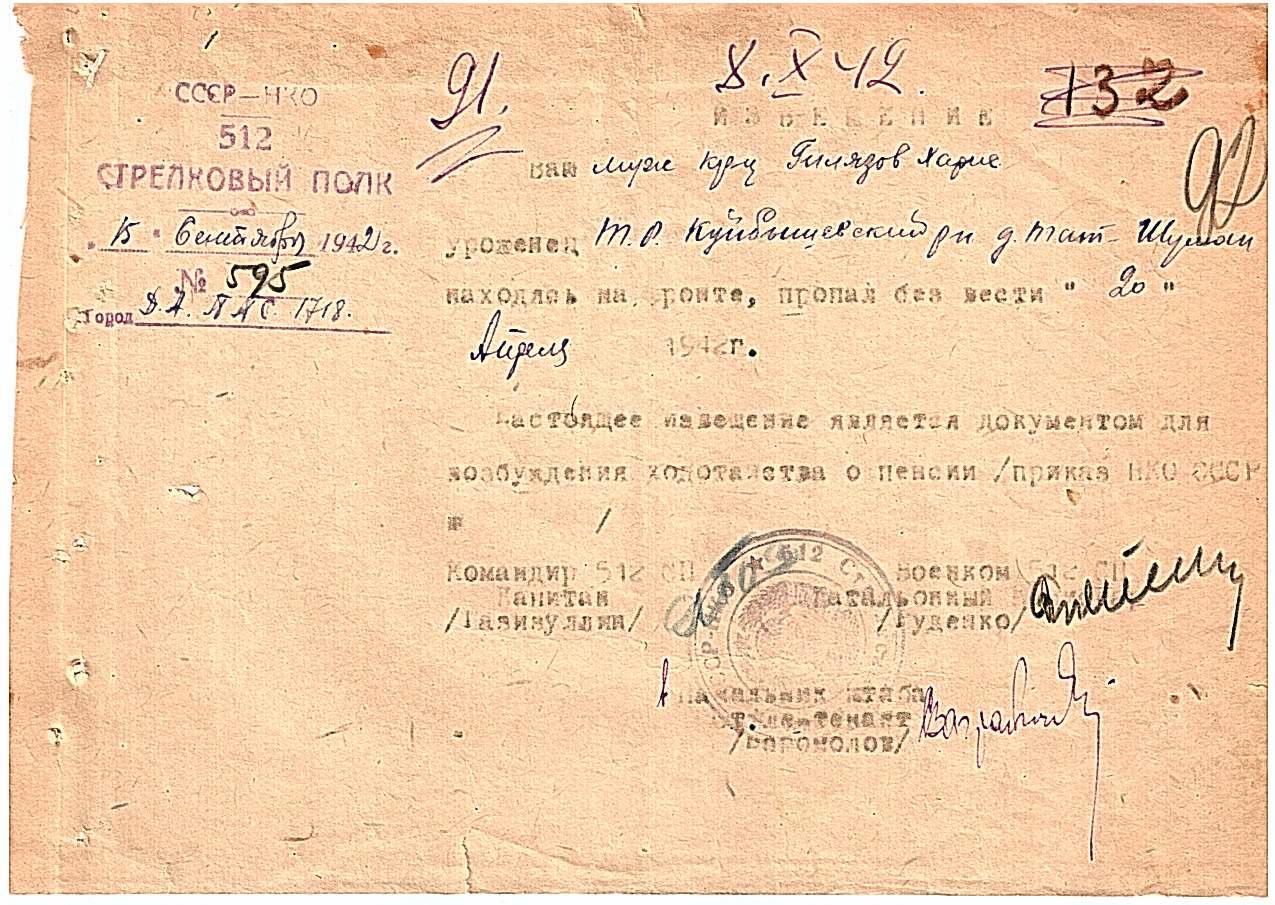 91.
8.X 42.
132
92
СССР—НКО
512
СТРЕЛКОВЫЙ ПОЛК
"15" Сентября 1942 г.
№ 595
Город Д.А. ППС. 1718.
ИЗВЕЩЕНИЕ
Ваш муж крц Гилязов Харис
уроженец Т.Р. Куйбышевский рн д. Тат-
находясь на фронте, пропал без вести " 20 "
Апреля 1942г.
Настоящее извещение является документом для
возбуждения ходотайства о пенсии /приказ НКО СССР
№ /
Командир 512 СП
Капитан
/Газизуллин/
Военком 512 СП
Батальонный
/Руденко/
512
Начальник штаба
/Богомолов/